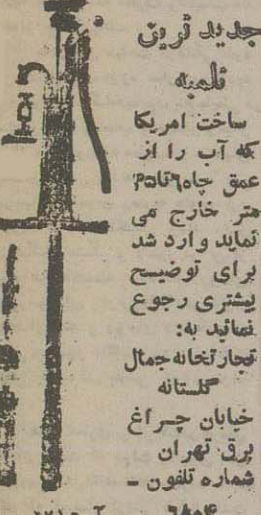 جدید ترین
تلمبه
ساخت امریکا
که آب را از
عمق چاه ۶ تا ۲۵
متر خارج می
نماید وارد شد
برای توضیح
بیشتری رجوع
نمائید به:
تجارتخانه جمال
گلستانه
خیابان چراغ
برق تهران
شماره تلفون -